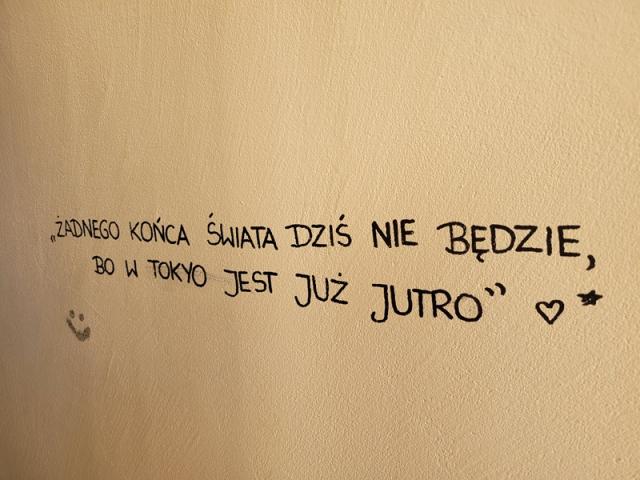 „ŻADNEGO KOŃCA ŚWIATA DZIŚ NIE BĘDZIE,
BO W TOKYO JEST JUŻ JUTRO”